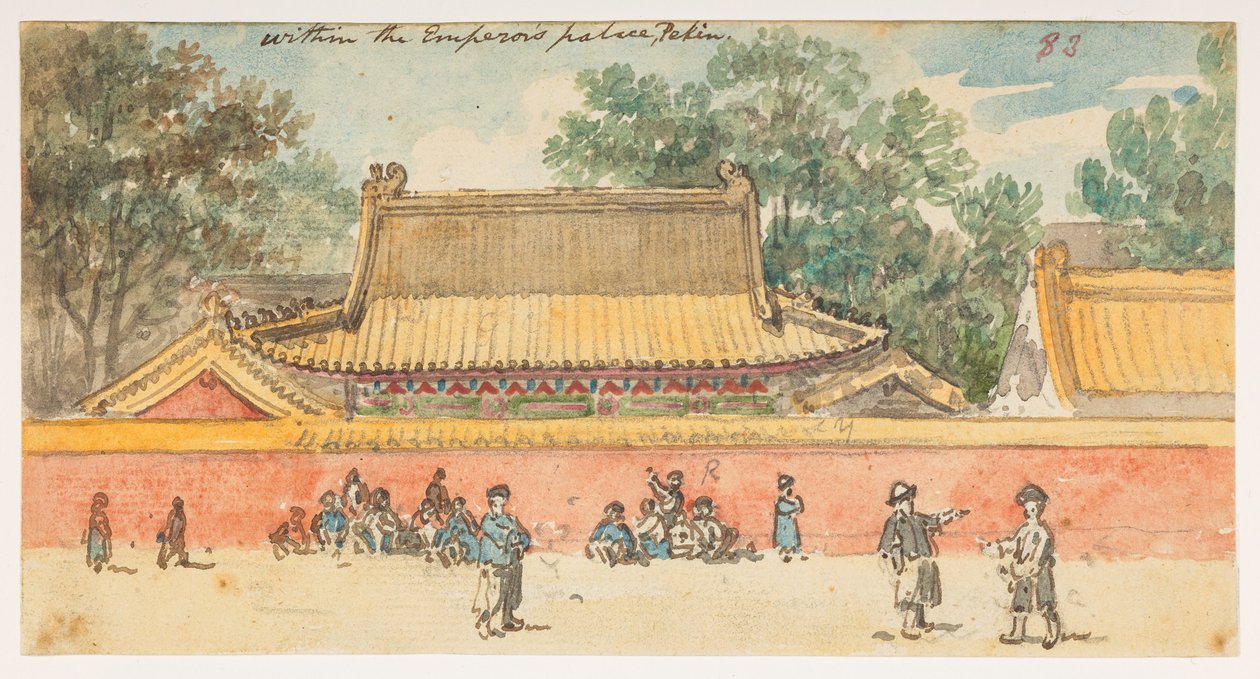 within the Emperor's palace, Pekin.
83
R
y